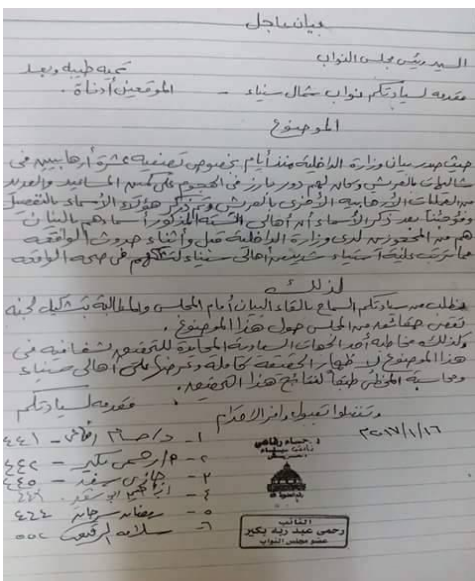 بيان عاجل
السيد رئيس مجلس النواب
تحية طيبة وبعد
مقدمه لسيادتكم نواب شمال سيناء - الموقعين أدناة.
الموضوع
حيث صدر بيان وزارة الداخلية منذ أيام بخصوص تصفية عشرة أرهابيين في
بالعريش وكان لهم دور بارز في الهجوم على كمين المساعيد والعديد
من العمليات الأرهابية الأخرى بالعريش هؤلاء الأسماء بالتفصيل
وفوجئنا بعد ذكر الأسماء أن أهالي الستة المذكور أسماءهم بالبيان
هم من المحجوزين لدى وزارة الداخلية قبل وأثناء حدوث الواقعه
مما ترتب علية أستياء شديد من أهالي سيناء في صحه الواقعه
لذلك
نطلب من سيادتكم السماح بألقاء البيان أمام المجلس والمطالبة بتشكيل لجنه
تقصي حقائق من المجلس حول هذا الموضوع.
وكذلك مخاطبه أحد الجهات السيادية المحايدة للتحقيق بشفافيه في
هذا الموضوع لأظهار الحقيقة كاملة وعرضها على أهالي سيناء
ومحاسبة المخطئ طبقاً لنتائج هذا التحقيق.
وتفضلوا بقبول وافر الاحترام
مقدمه لسيادتكم
٢٠١٧/١/١٦
١- د/حسام رفاعي - ٤٤١
٢- م/رحمي بكير - ٤٤٢
٣- جازي سعد - ٤٤٥
٤- ابراهيم ابو شعيره
٥- رمضان سرحان - ٤٤٤
٦- سلامه الرقيعي
د. حسام رفاعي
النائب
رحمى عبد ربه بكير
عضو مجلس النواب